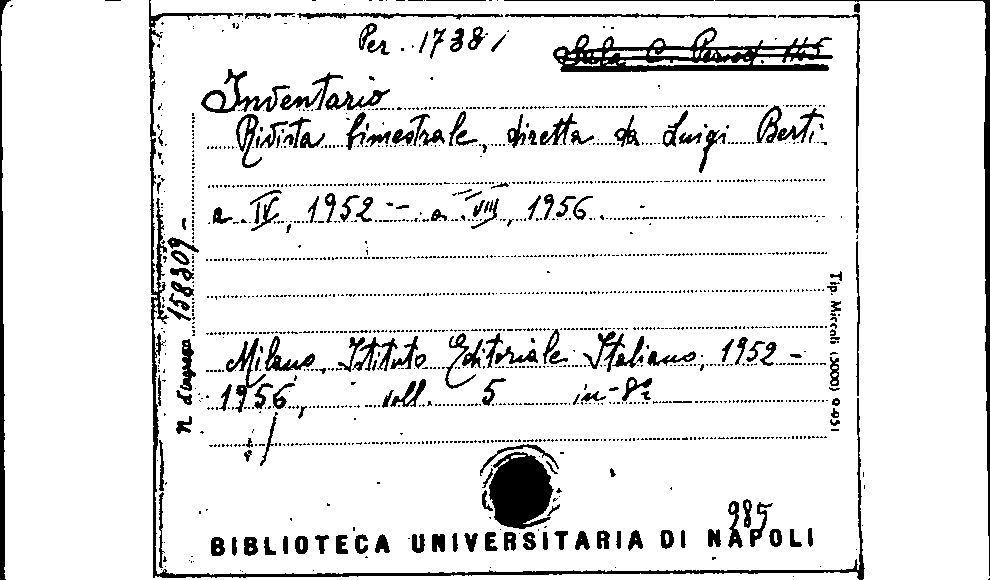 Per. 1738/
Sala C. Period. 145
Inventario
Rivista bimestrale, diretta da Luigi Berti
a. IV, 1952 -- a. VIII, 1956.
Milano, Istituto Editoriale Italiano, 1952 -
1956, voll. 5 in-8º
n d'ingresso 158309 -
Tip. Miccoli (5000) 9-951
985
BIBLIOTECA UNIVERSITARIA DI NAPOLI